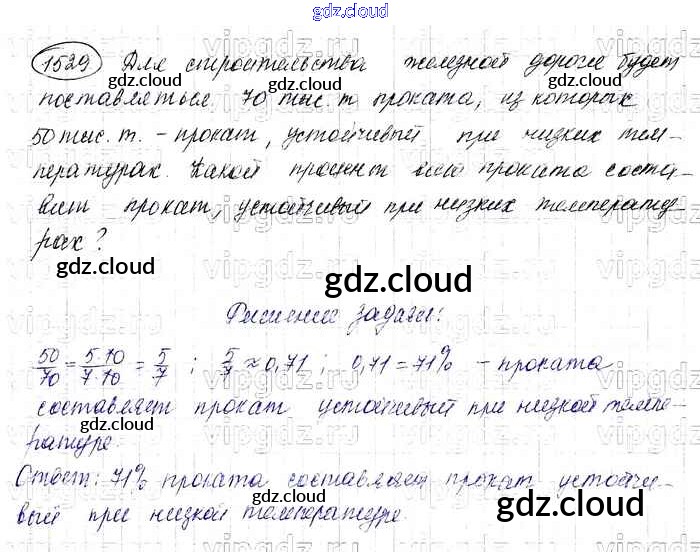 gdz.cloud
1529 Для строительства железной дороги будет
поставляться 70 тыс. т проката, из которых
50 тыс. т. - прокат, устойчивый при низких тем-
пературах. Какой процент всего проката соста-
вит прокат, устойчивый при низких температу-
рах?
Решение задачи:
50/70 = 5·10/7·10 = 5/7 ; 5/7 ≈ 0,71 ; 0,71 = 71% - проката
составляет прокат устойчивый при низкой темпе-
ратуре.
Ответ: 71% проката составляет прокат устойчи-
вый при низкой температуре.